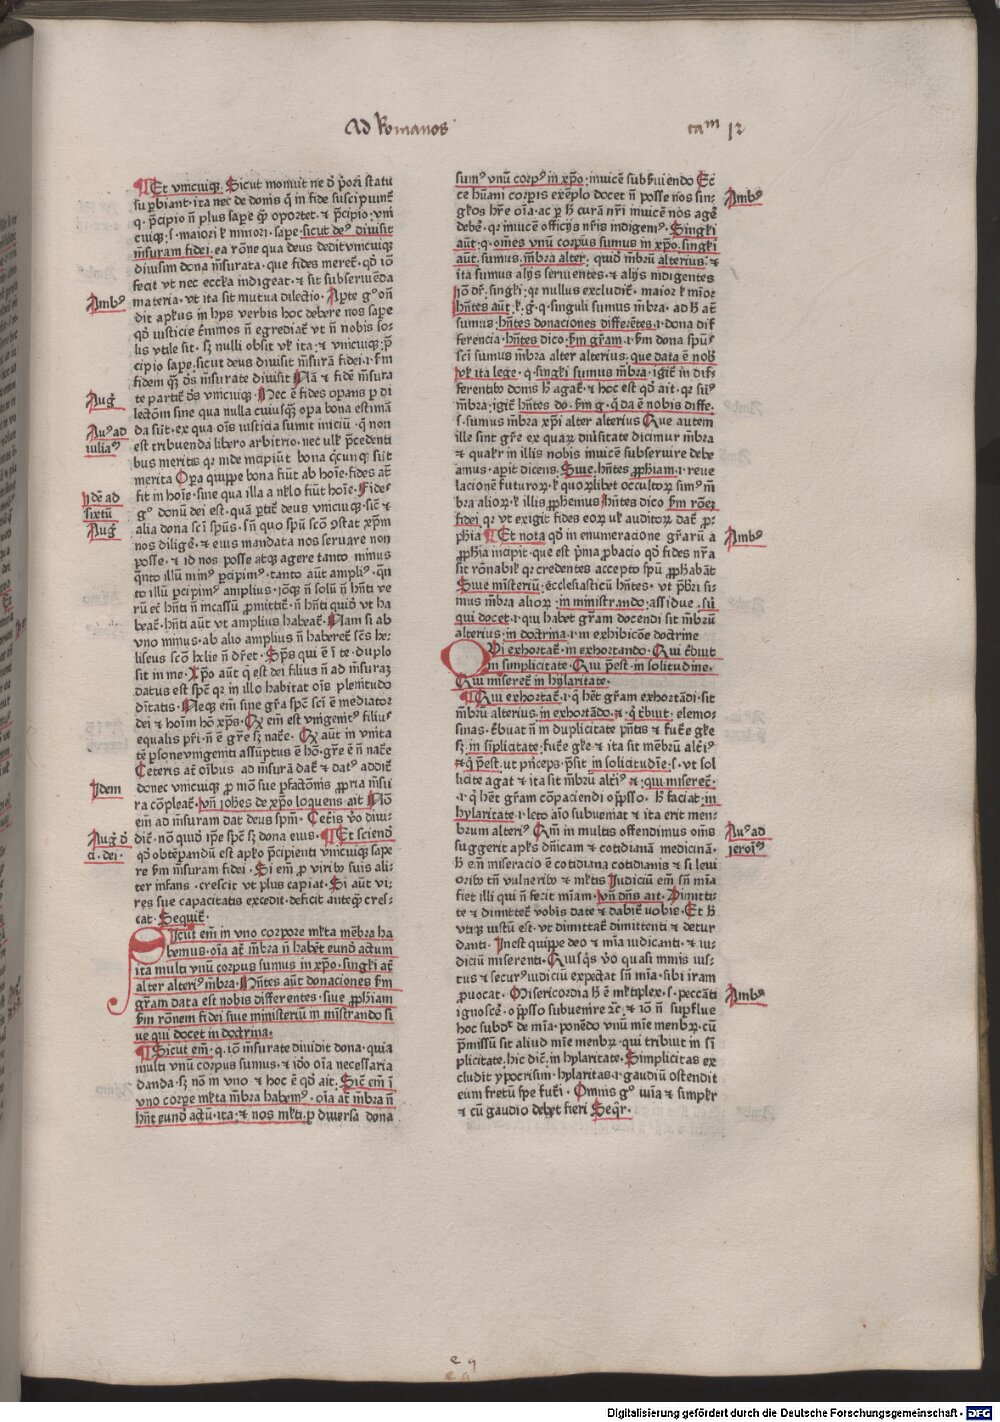 Ad Romanos
caᵐ 12
¶Et vnicuiqꝫ. Sicut monuit ne ꝺ̄ pͦori statu
suꝑbiant· ita nec de donis q̄ in fide suscipiunt̄
q. p̄cipio n̄ plus sape q̄ꝫ oportet· ⁊ p̄cipio· vni
cuiqꝫ· s· maiori ꝉ minori· sape· sicut deꝰ diuisit
m̄suram fidei. ea rōne qua deus dedit vnicuiqꝫ
diuisim dona m̄surata· que fides meret̄· qd̓ iō
fecit vt nec eccłia indigeat· ⁊ sit subseruienda
Ambꝰ
materia· vt ita sit mutua dilectio· Apte gͦ on̄
dit apłus in hys verbis hoc debere nos sape
qd̓ iusticie t̓minos n̄ egrediat̄ vt n̄ nobis so-
lis vtile sit· sꝫ nulli obsit vł ita· ⁊ vnicuiqꝫ· p̄
cipio sape· sicut deus diuisit m̄surā fidei· ı· ẜm
fidem quā dꝰ mēsurate diuisit Nā ⁊ fidē m̄sura
Aug᷒
te partit̄ dꝰ vnicuiqꝫ· Nec ē fides opans ꝑ di
lectōm sine qua nulla cuiusqꝫ opa bona estimā
Auꝰ ad
da sūt· ex qua oīs iusticia sumit iniciū· q̄ non
iulianū
est tribuenda libero arbitrio· nec ull᷒ p̄cedenti
bus meritis qꝛ inde incipiūt bona q̄cunqꝫ sūt
merita Opa quippe bona fiūt ab hoīe· fides at̄
Idē ad
fit in hoīe· sine qua illa a nłło fiūt hoīe· Fides
sixtū
gͦ donū dei est· quā ꝑtit̄ deus vnicuiqꝫ· sic̄ ⁊
Aug᷒
alia dona sc̄i sp̄us· sn̄ quo spū sc̄o ꝯstat xp̄m
nos diligē· ⁊ eius mandata nos seruare non
posse· ⁊ id nos posse atqꝫ agere tanto minus
q̄nto illū minꝰ ꝑcipimꝰ· tanto aūt ampliꝰ· q̄n
to illū ꝑcipimꝰ amplius· ioq̄ꝫ n̄ solū n̄ hn̄ti ve
rū ec̄ hn̄ti n̄ incassū ꝓmittit̄· n̄ hn̄ti quid᷒ vt ha
beat· hn̄ti aūt vt amplius habeat· Nam si ab
vno minus· ab alio amplius n̄ haberet᷒ sēs he-
liseus sc̄o helie n̄ dr̄et· Sp̄us qui ē ī te· duplo
sit in me· Xp̄o aūt q̄ est dei filius n̄ ad m̄suraꝫ
datus est spc̄ qꝛ in illo habitat oīs plenitudo
dītatis· Neqꝫ em̄ sine gr̄a spc̄ sc̄i ē mediator
dei ⁊ hoīm hō xp̄s· Qͥ em̄ est vnigenitꝰ filiꝰ
equalis pr̄i· n̄ ē gr̄e sꝫ nat᷒e· Qͥ aūt in vnita
tē ꝑsone vnigeniti assūptus ē hō· gr̄e ē n̄ nat᷒e
Ceteris at̄ oībus ad m̄surā dat᷒ ⁊ datꝰ addit᷒
Idem
donec vnicuiqꝫ ꝓ mō sue ꝑfectōnis ꝓpria m̄su
ra cōpleat᷒· vn̄ ioh̄es de xp̄o loquens ait Nō
em̄ ad m̄suram dat deus sp̄m· Cet᷒is v̊o diui-
Aug᷒ ꝺ̄
dit᷒· nō quid᷒ ip̄e spc̄ sꝫ dona eius· ¶Et sciendꝰ
ci. dei·
qd̓ obtēpandū est apł᷒o p̄cipienti vnicuiqꝫ sape
re ẜm m̄suram fidei· Si em̄ ꝓ virib᷒ suis ali-
ter infans· crescit vt plus capiat· Si aūt vi-
res sue capacitatis excedit· deficit anteq̄ꝫ cres-
cat· Sequit᷒·
Sicut em̄ in vno corpore mł᷒ta mēbra ha
bemus· oīa at̄ mēbra n̄ habēt eundē actum
ita multi vnū corpus sumus in xp̄o· singłi at̄
alter alteriꝰ mēbra· Hn̄tes aūt donaciones ẜm
gr̄am data est nobis differentes· siue ꝓph̄iam
ẜm rōnem fidei siue ministeriū in mīstrando si
ue qui docet in doctrina·
¶Sicut em̄· q. iō m̄surate diuidit dona· quia
multi vnū corpus sumus· ⁊ idō oīa necessaria
danda· sꝫ nō in vno· ⁊ hoc ē qd̓ ait· Sic̄ em̄ ī
vno corpe mł᷒ta mēbra habemꝰ· oīa at̄ mēbra n̄
hn̄t eundē actū· ita· ⁊ nos mł᷒ti· ꝑ diuersa dona
sumꝰ vnū corpꝰ in xp̄o· inuicē subseruiendo Ec̄
Ambꝰ
ce hūani corpis exēplo docet n̄ posse nos sin-
głos hr̄e oīa· ac ꝑ h᷒ curā nr̄i inuicē nos age᷒
debe᷒· qꝛ inuicē officijs nr̄is indigemꝰ· Singłi
aūt· q. oēs vnū corpus sumus in xp̄o· singłi
aūt· sumus· mēbra alter· quid mēbrū alterius· ⁊
ita sumus alijs seruientes· ⁊ alijs indigentes
iō dr̄· singłi· qꝛ nullus excludit᷒· maior ꝉ mīor
hn̄tes aūt· ꝉ· g᷒· q· singuli sumus mēbra· ad h᷒ at̄
sumus· hn̄tes donaciones differētes· ı· dona dif
ferencia· hn̄tes dico· ẜm gr̄am· ı· ẜm dona spūs
sc̄i sumus mēbra alter alterius· que data ē nob᷒
vł ita lege· q· singłi sumus mēbra· igit̄ in dif
ferentib᷒ donis h᷒ agat᷒· ⁊ hoc est qd̓ ait· qꝛ sūꝰ
mēbra· igit̄ hn̄tes do· ẜm g· q̄ da ē nobis diffe·
s· sumus mēbra xp̄i alter alterius Que autem
ille sint gr̄e ex quaꝝ diu᷒sitate dicimur mēbra
⁊ qualr̄ in illis nobis inuicē subseruire debe
amus· apit dicens· Siue· hn̄tes ꝓph̄iam· ı· reue
lacionē futuroꝝ· ꝉ quoꝝlibet occultoꝝ simꝰ m̄
bra alioꝝ· ꝉ illis ꝓph̄emus hn̄tes dico ẜm rōeꝫ
fidei qꝛ vt exigit fides eoꝝ vł auditoꝝ dat᷒ ꝓ-
ph̄ia ¶Et nota qd̓ in enumeracione gr̄arū a
Ambꝰ
ꝓph̄ia incipit· que est pͥma ꝓbacio qd̓ fides nr̄a
sit rōnabił· qꝛ credentes accepto spū ꝓph̄abāt
Siue mīsteriū· ecclesiasticū hn̄tes· vt pr̄bri si-
mus mēbra alioꝝ· in ministrando· assidue· siꝰ
qui docet· ı· qui habet gr̄am docendi sit mēbrū
alterius· in doctrina· ı· in exhibicōe doctrine
Qvi exhortat᷒· in exhortando· Qui t᷒buit
in simplicitate· Qui p̄est· in solitudine·
Qui miseret᷒ in hylaritate·
¶Qui exhortat᷒· ı· q̄ h᷒t gr̄am exhortādi· sit
mēbrū alterius· in exhortādo· ⁊ q̄ t᷒buit· elemo-
sinas· t᷒buat n̄ in duplicitate pn̄tis ⁊ fut᷒e gl᷒e
sꝫ in sīplicitate· fut᷒e gl᷒e ⁊ ita sit mēbrū alt᷒iꝰ
⁊ q̄ p̄est· ut prīceps· p̄sit in solicitudīe· s· vt sol
licite agat ⁊ ita sit mēbrū alt᷒iꝰ ⁊ qui miseret᷒·
ı· q̄ h᷒t gr̄am cōpaciendi oꝓsso· h᷒ faciat· in
hylaritate· ı· leto aīo subueniat ⁊ ita erit mem-
brum alteriꝰ Qm̄ in multis offendimus oīns
Auꝰ ad
suggerit apłs dn̄icam ⁊ cotidianā medicinā·
ieroīꝰ
h᷒ em̄ miseracio ē cotidiana cotidianis ⁊ si leui
orib᷒ tn̄ vulnerib᷒ ⁊ mł᷒tis Iudiciū em̄ sn̄ mīa
fiet illi qui n̄ fecit mīam· vn̄ dn̄s ait· Dimitti-
te ⁊ dimittet᷒ vobis date ⁊ dabit᷒ uobis· Et h᷒
vtiqꝫ iustū est· vt dimittat᷒ dimittenti ⁊ detur
danti· Inest quippe deo ⁊ mīa iudicanti· ⁊ iu-
diciū miserenti· Quisq̄s v̊o quasi nimis ius-
tus ⁊ securꝰ iudiciū expectat sn̄ mīa· sibi iram
Ambꝰ
ꝓuocat· Misericordia h᷒ ē mł᷒tiplex· s· peccāti
ignosce᷒· oꝓsso subuenire ⁊c̄· ⁊ iō n̄ suꝑflue
hoc subdᵗ de mīa· ponēdo vnū mīe membꝝ· cū
p̄missū sit aliud mīe membꝝ· qui tribuit in sī
plicitate· hic dic̄· in hylaritate· Simplicitas ex
cludit ypocrisim· hylaritas· ı· gaudiū ostendit
eum fretū spe fut᷒i· Omnis gͦ uīa ⁊ simplr̄
⁊ cū gaudio debet fieri Seqꝛ·
e 9
Digitalisierung gefördert durch die Deutsche Forschungsgemeinschaft - DFG